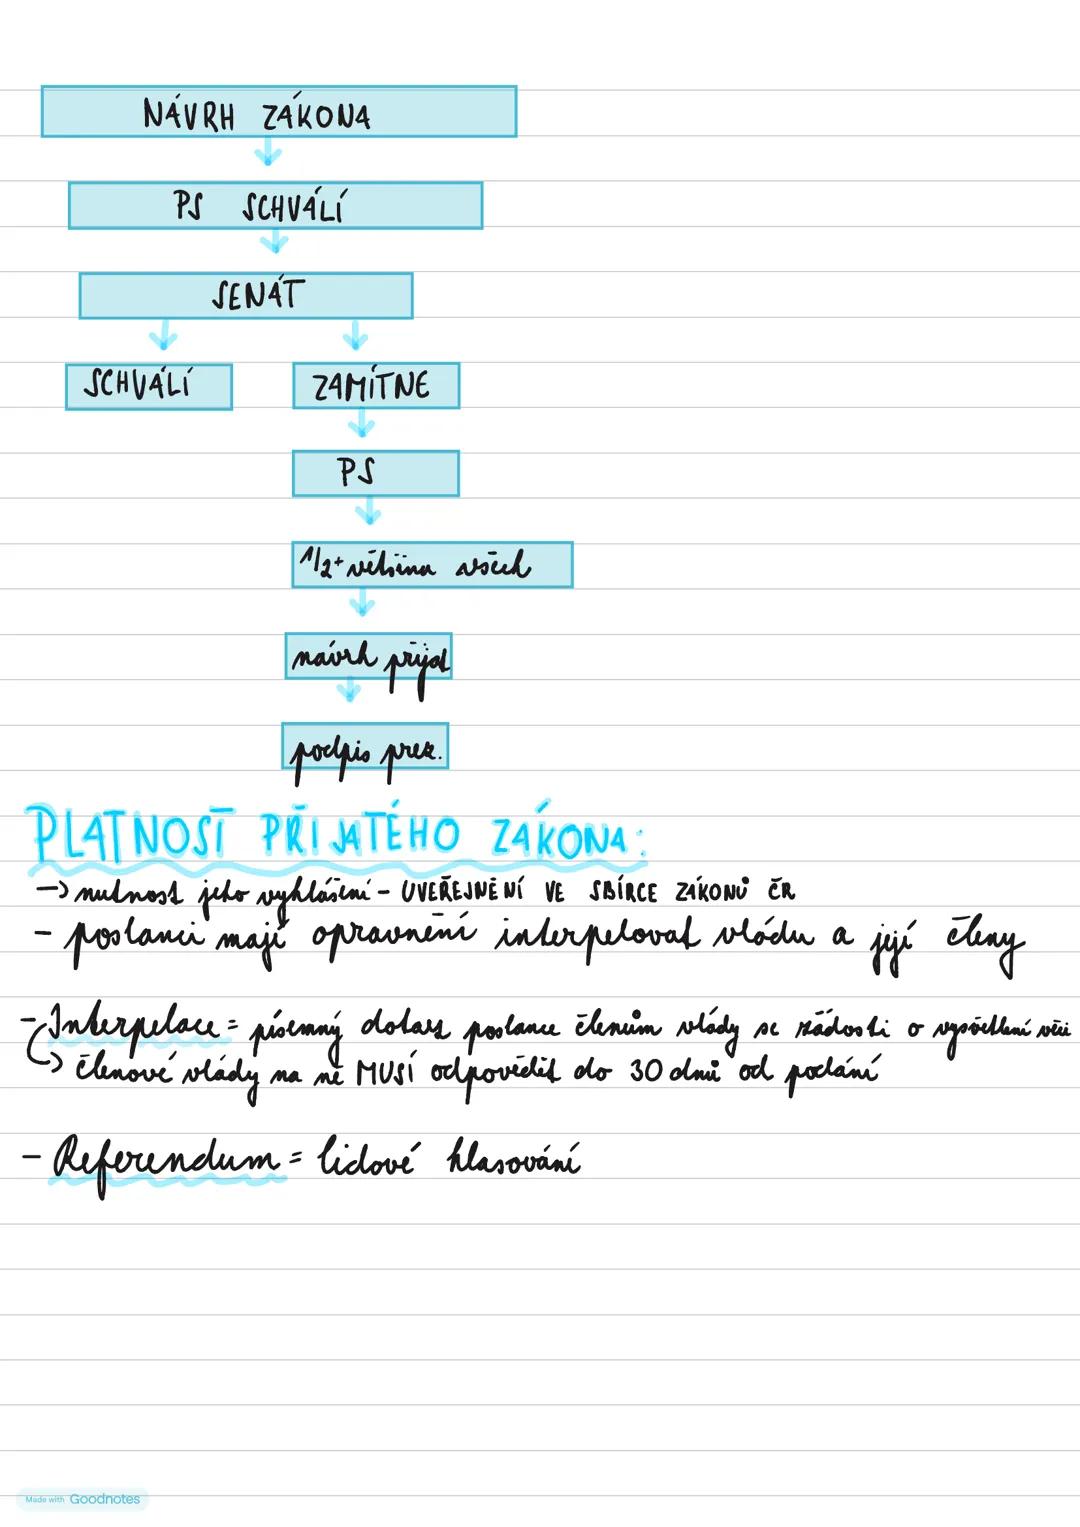 NÁVRH ZÁKONA
PS SCHVÁLÍ
SENÁT
SCHVÁLÍ ZAMÍTNE
PS
1/2+ většina všech
návrh přijat
podpis prez.
PLATNOST PŘIJATÉHO ZÁKONA:
→ nutnost jeho vyhlášení - UVEŘEJNĚNÍ VE SBÍRCE ZÁKONŮ ČR
- poslanci mají opravnění interpelovat vládu a její členy
- Interpelace = písemný dotaz poslance členům vlády se žádosti o vysvětlení věci
→ členové vlády na ně MUSÍ odpovědit do 30 dnů od podání
- Referendum = lidové hlasování
Made with Goodnotes